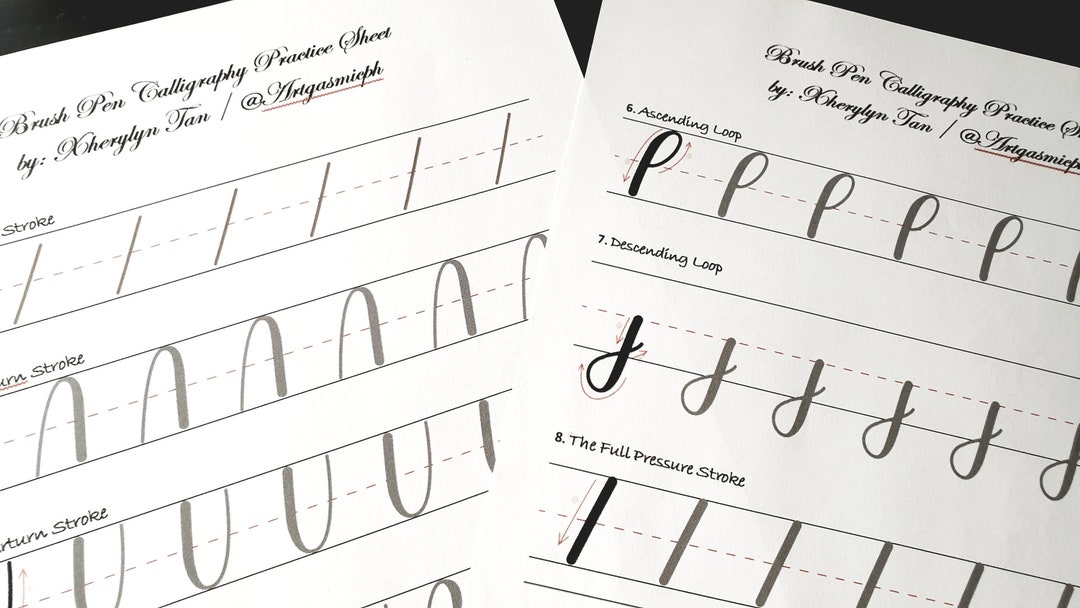 Brush Pen Calligraphy Practice Sheet
by: Xherylyn Tan / @Artgasmicph
Stroke
urn Stroke
rturn Stroke
Brush Pen Calligraphy Practice She
by: Xherylyn Tan / @Artgasmicph
6. Ascending Loop
7. Descending Loop
8. The Full Pressure Stroke